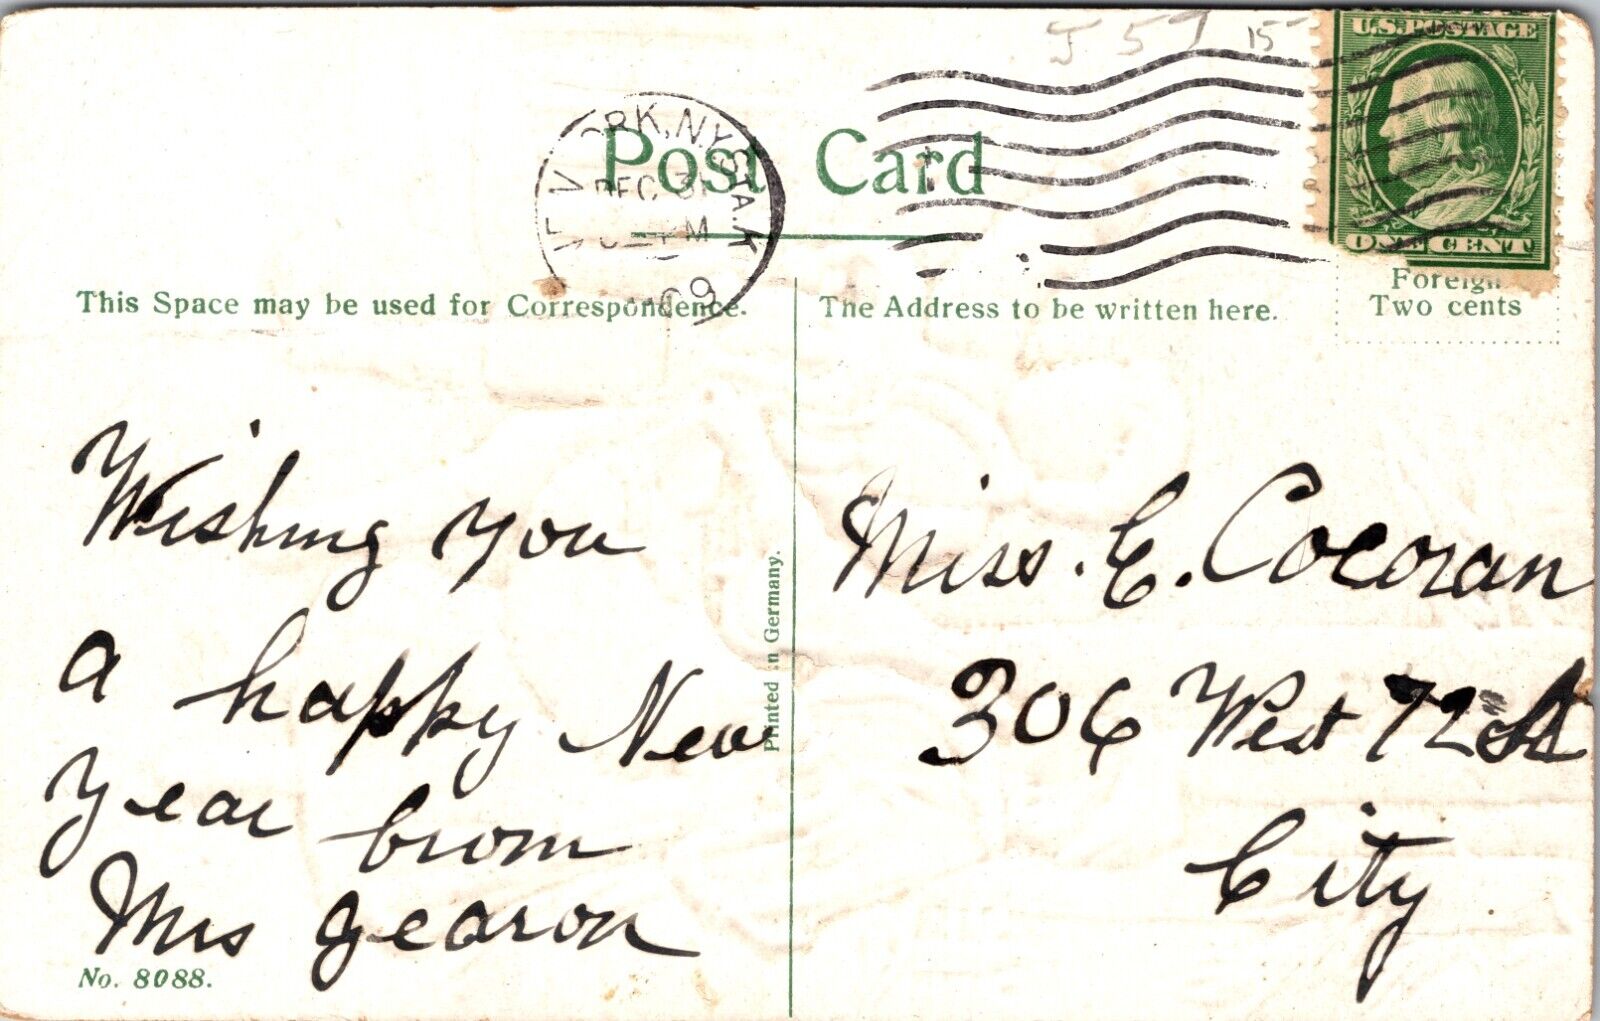 J 5 T 15
U.S. POSTAGE
ORK, N.Y. STA. K
DEC 31
PM
09
Post Card
ONE CENT
Foreign
Two cents
This Space may be used for Correspondence.
The Address to be written here.
Wishing you
a happy New
Year from
Mrs Gearon
No. 8088.
Printed in Germany.
Miss. C. Cocoran
306 West 72 St
City